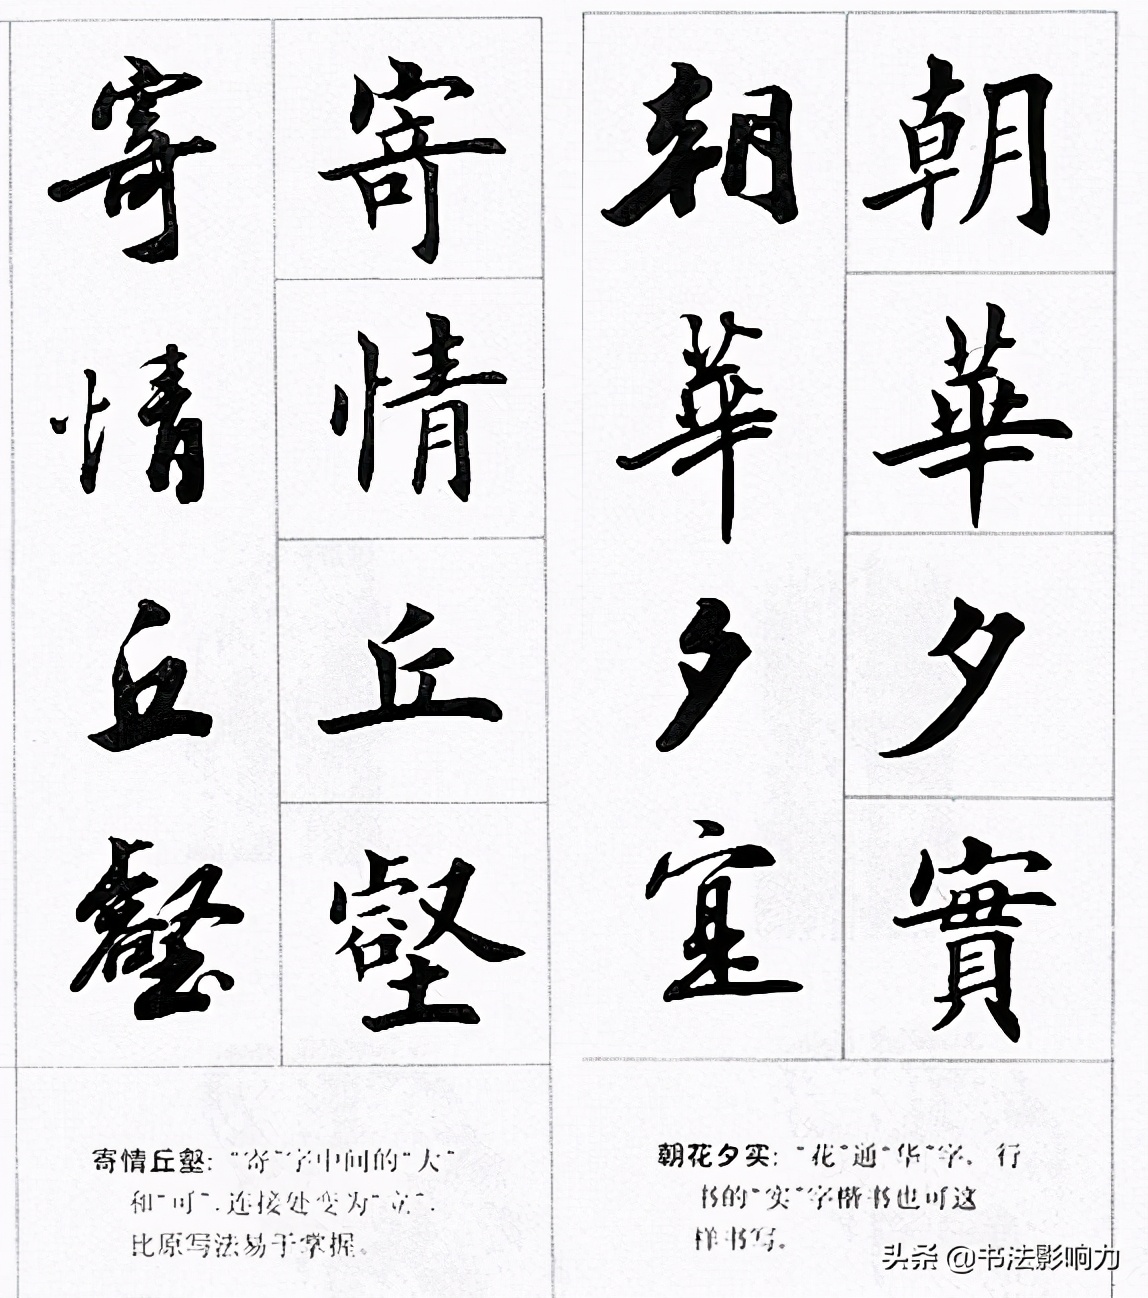 朝華夕實
朝華夕寔
寄情丘壑
寄情丘壑
朝花夕实：“花”通“华”字，行
书的“实”字楷书也可这
样书写。
寄情丘壑：“寄”字中间的“大”
和“可”，连接处变为“立”，
比原写法易于掌握。
头条 @书法影响力